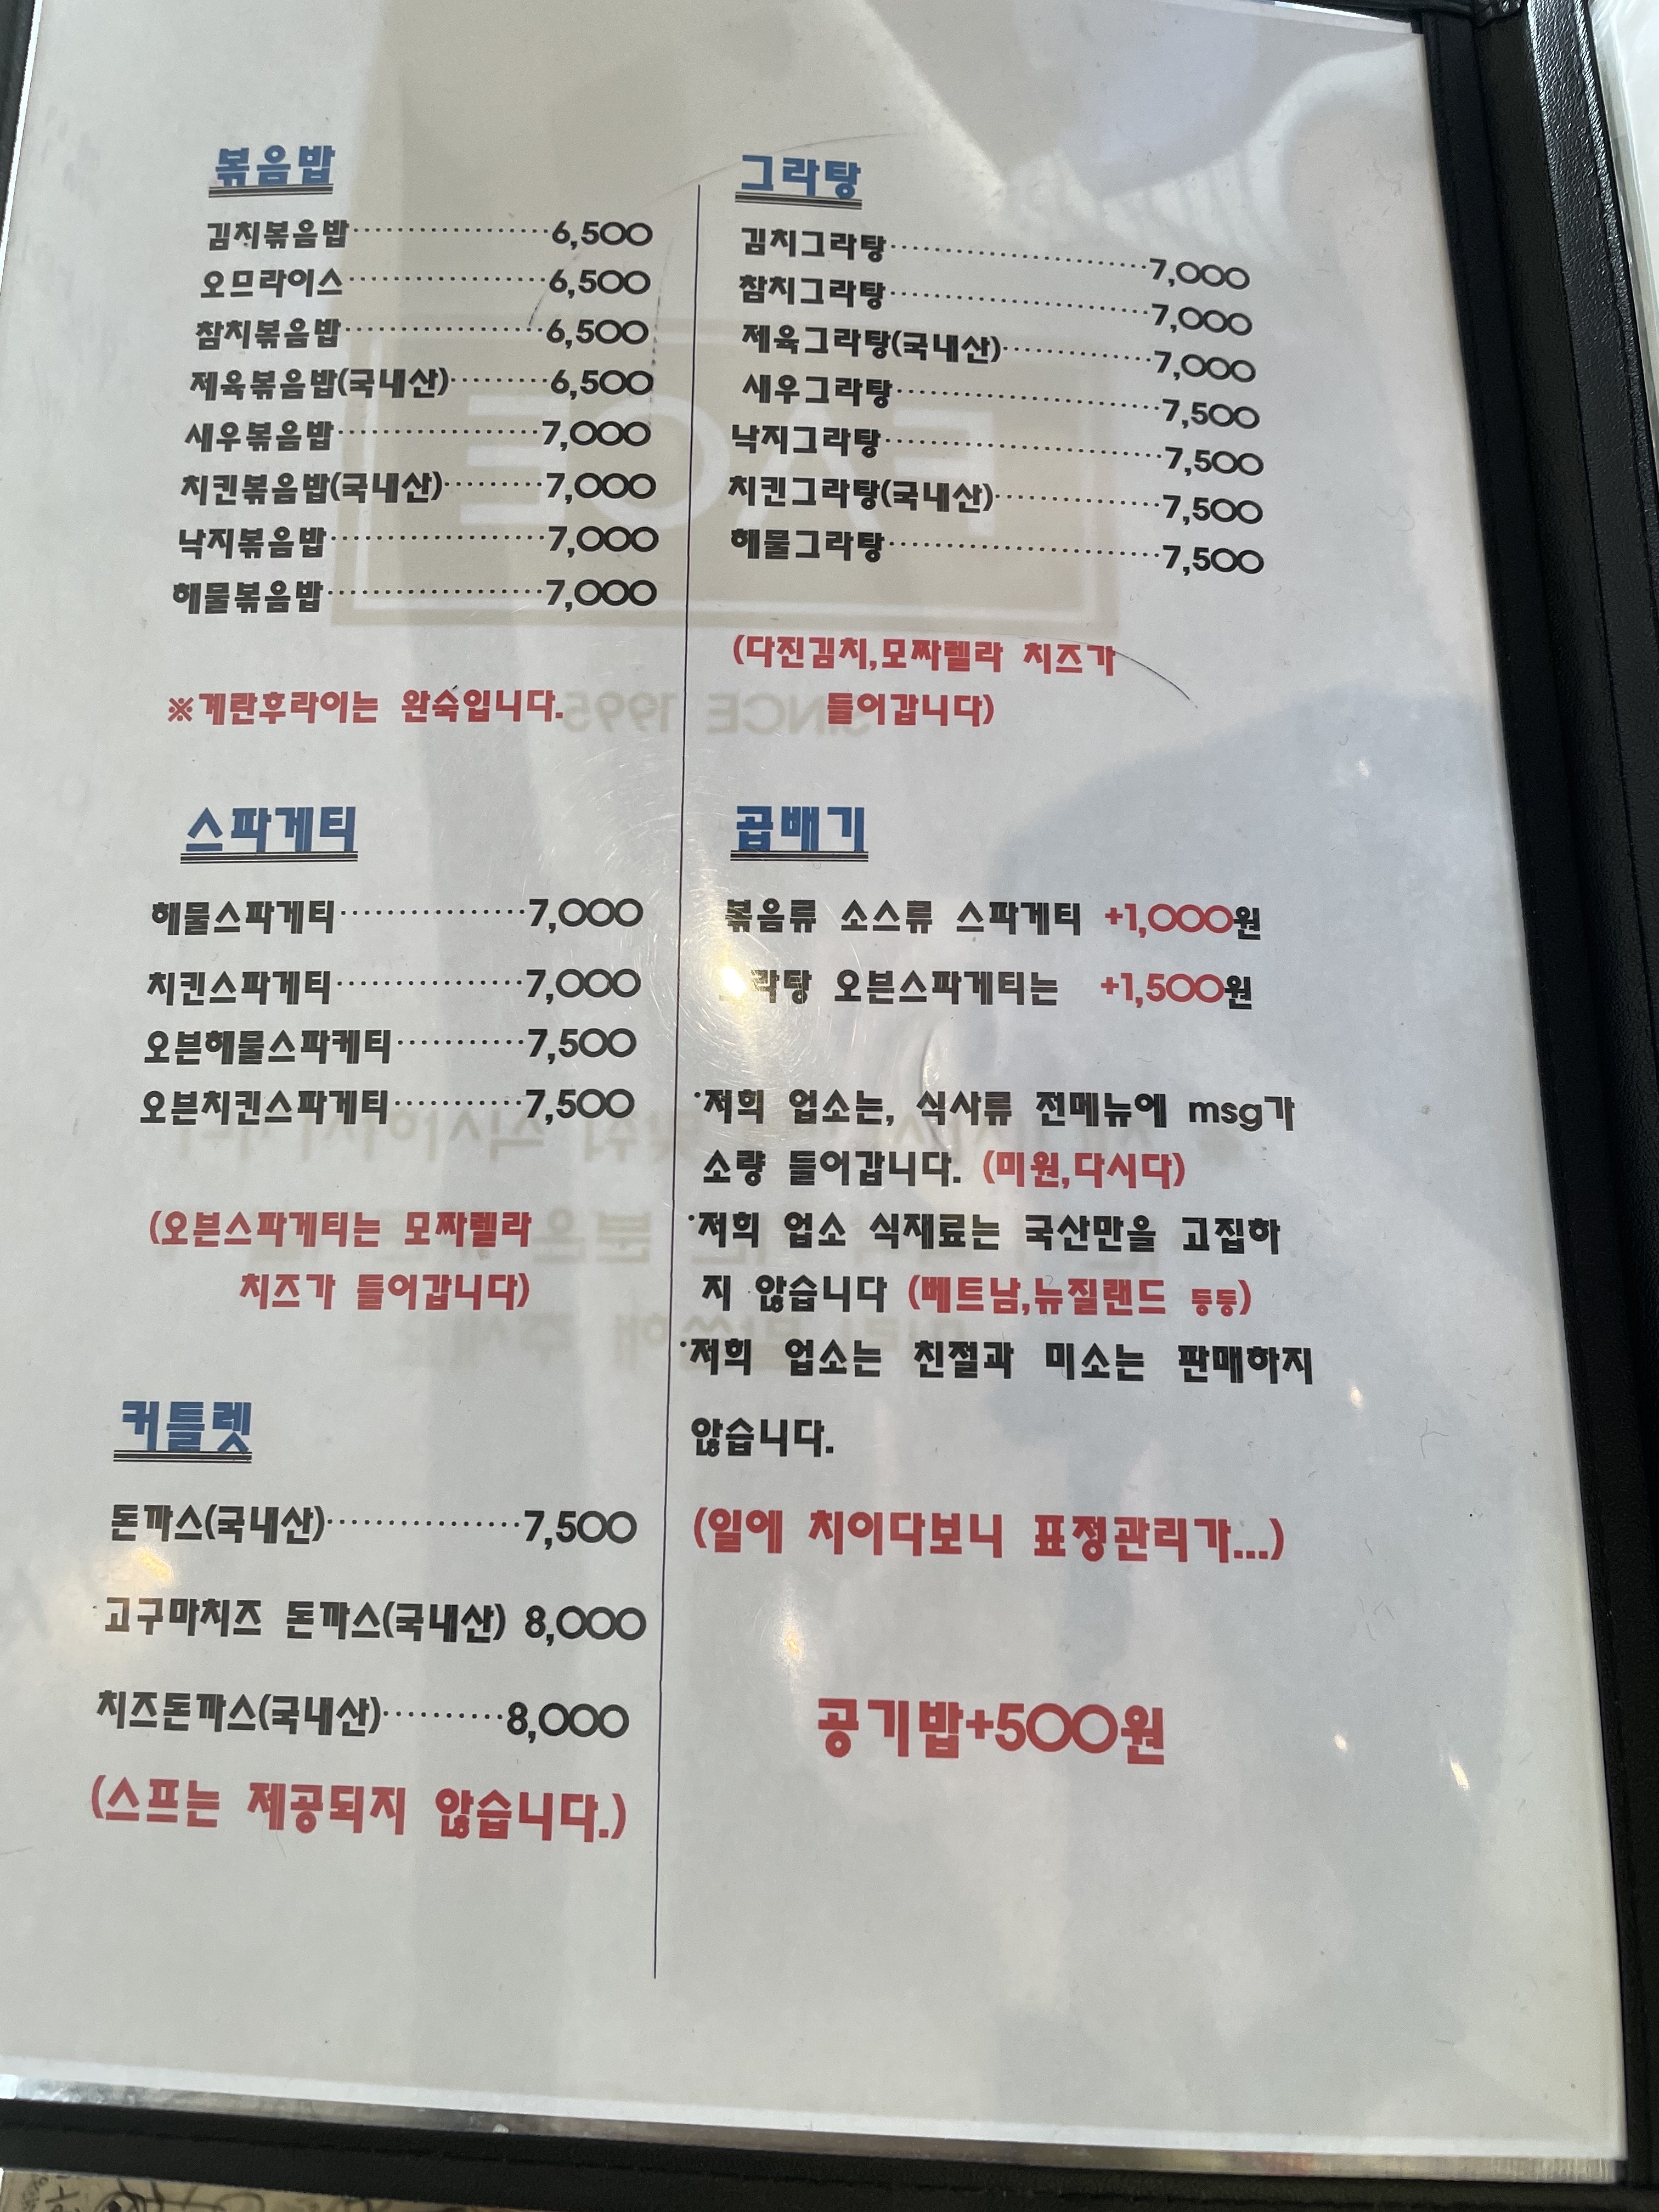 볶음밥
김치볶음밥··················6,500
오므라이스··················6,500
참치볶음밥··················6,500
제육볶음밥(국내산)·········6,500
새우볶음밥··················7,000
치킨볶음밥(국내산)·········7,000
낙지볶음밥··················7,000
해물볶음밥··················7,000
※계란후라이는 완숙입니다.
그라탕
김치그라탕························7,000
참치그라탕························7,000
제육그라탕(국내산)··············7,000
새우그라탕························7,500
낙지그라탕························7,500
치킨그라탕(국내산)···············7,500
해물그라탕························7,500
(다진김치,모짜렐라 치즈가
들어갑니다)
스파게티
해물스파게티················7,000
치킨스파게티················7,000
오븐해물스파케티···········7,500
오븐치킨스파게티···········7,500
(오븐스파게티는 모짜렐라
치즈가 들어갑니다)
커틀렛
돈까스(국내산)················7,500
고구마치즈 돈까스(국내산) 8,000
치즈돈까스(국내산)··········8,000
(스프는 제공되지 않습니다.)
곱배기
볶음류 소스류 스파게티 +1,000원
오븐스파게티는 +1,500원
·저희 업소는, 식사류 전메뉴에 msg가
소량 들어갑니다. (미원,다시다)
·저희 업소 식재료는 국산만을 고집하
지 않습니다 (베트남,뉴질랜드 등등)
·저희 업소는 친절과 미소는 판매하지
않습니다.
(일에 치이다보니 표정관리가...)
공기밥+500원
SINCE 1995